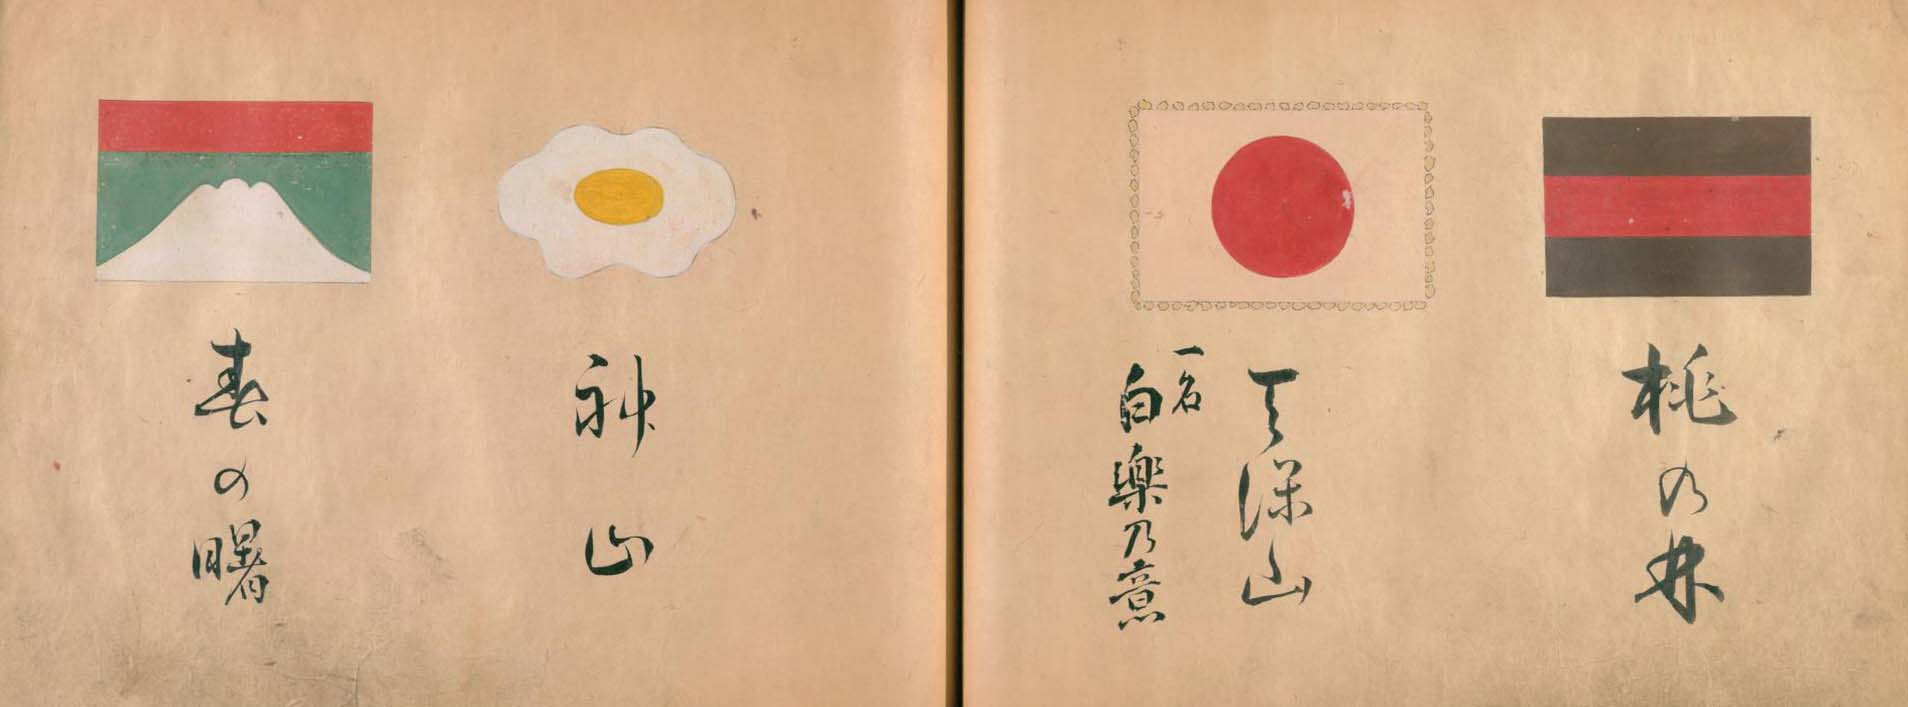 桃の林
天保山
一名
白樂乃意
神山
春の曙